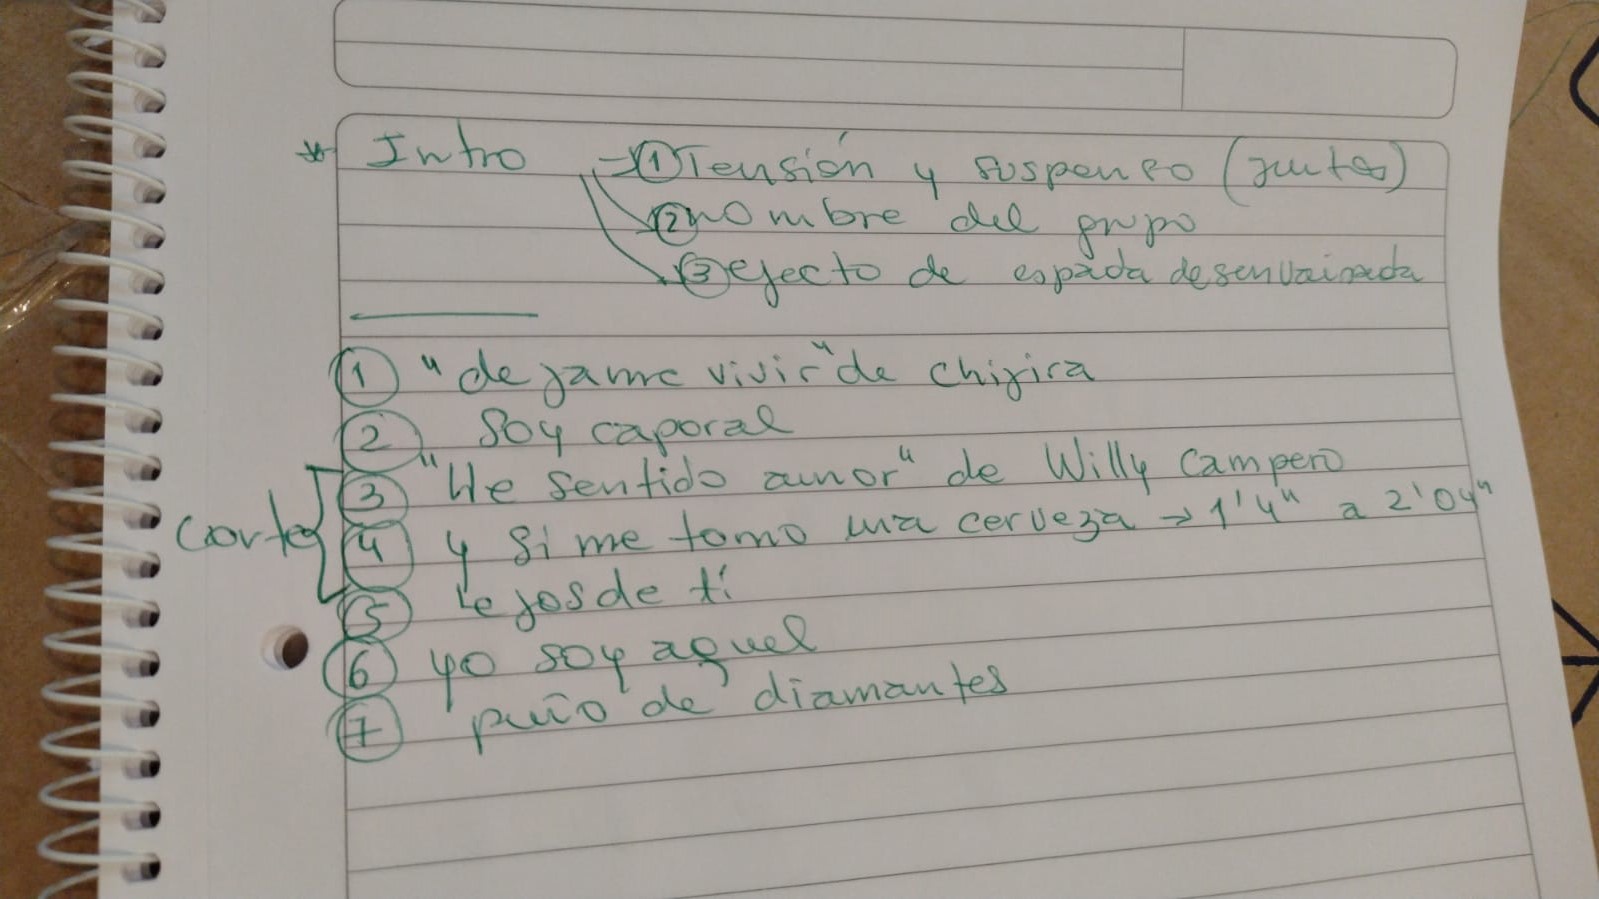 * Intro → ① Tensión y suspenso (juntas)
② nombre del grupo
③ efecto de espada desenvainada
① "dejame vivir" de chijira
② Soy caporal
③ "He sentido amor" de Willy Campero
cortes ④ y si me tomo una cerveza → 1'4" a 2'04"
⑤ lejos de tí
⑥ yo soy aquel
⑦ puño de diamantes